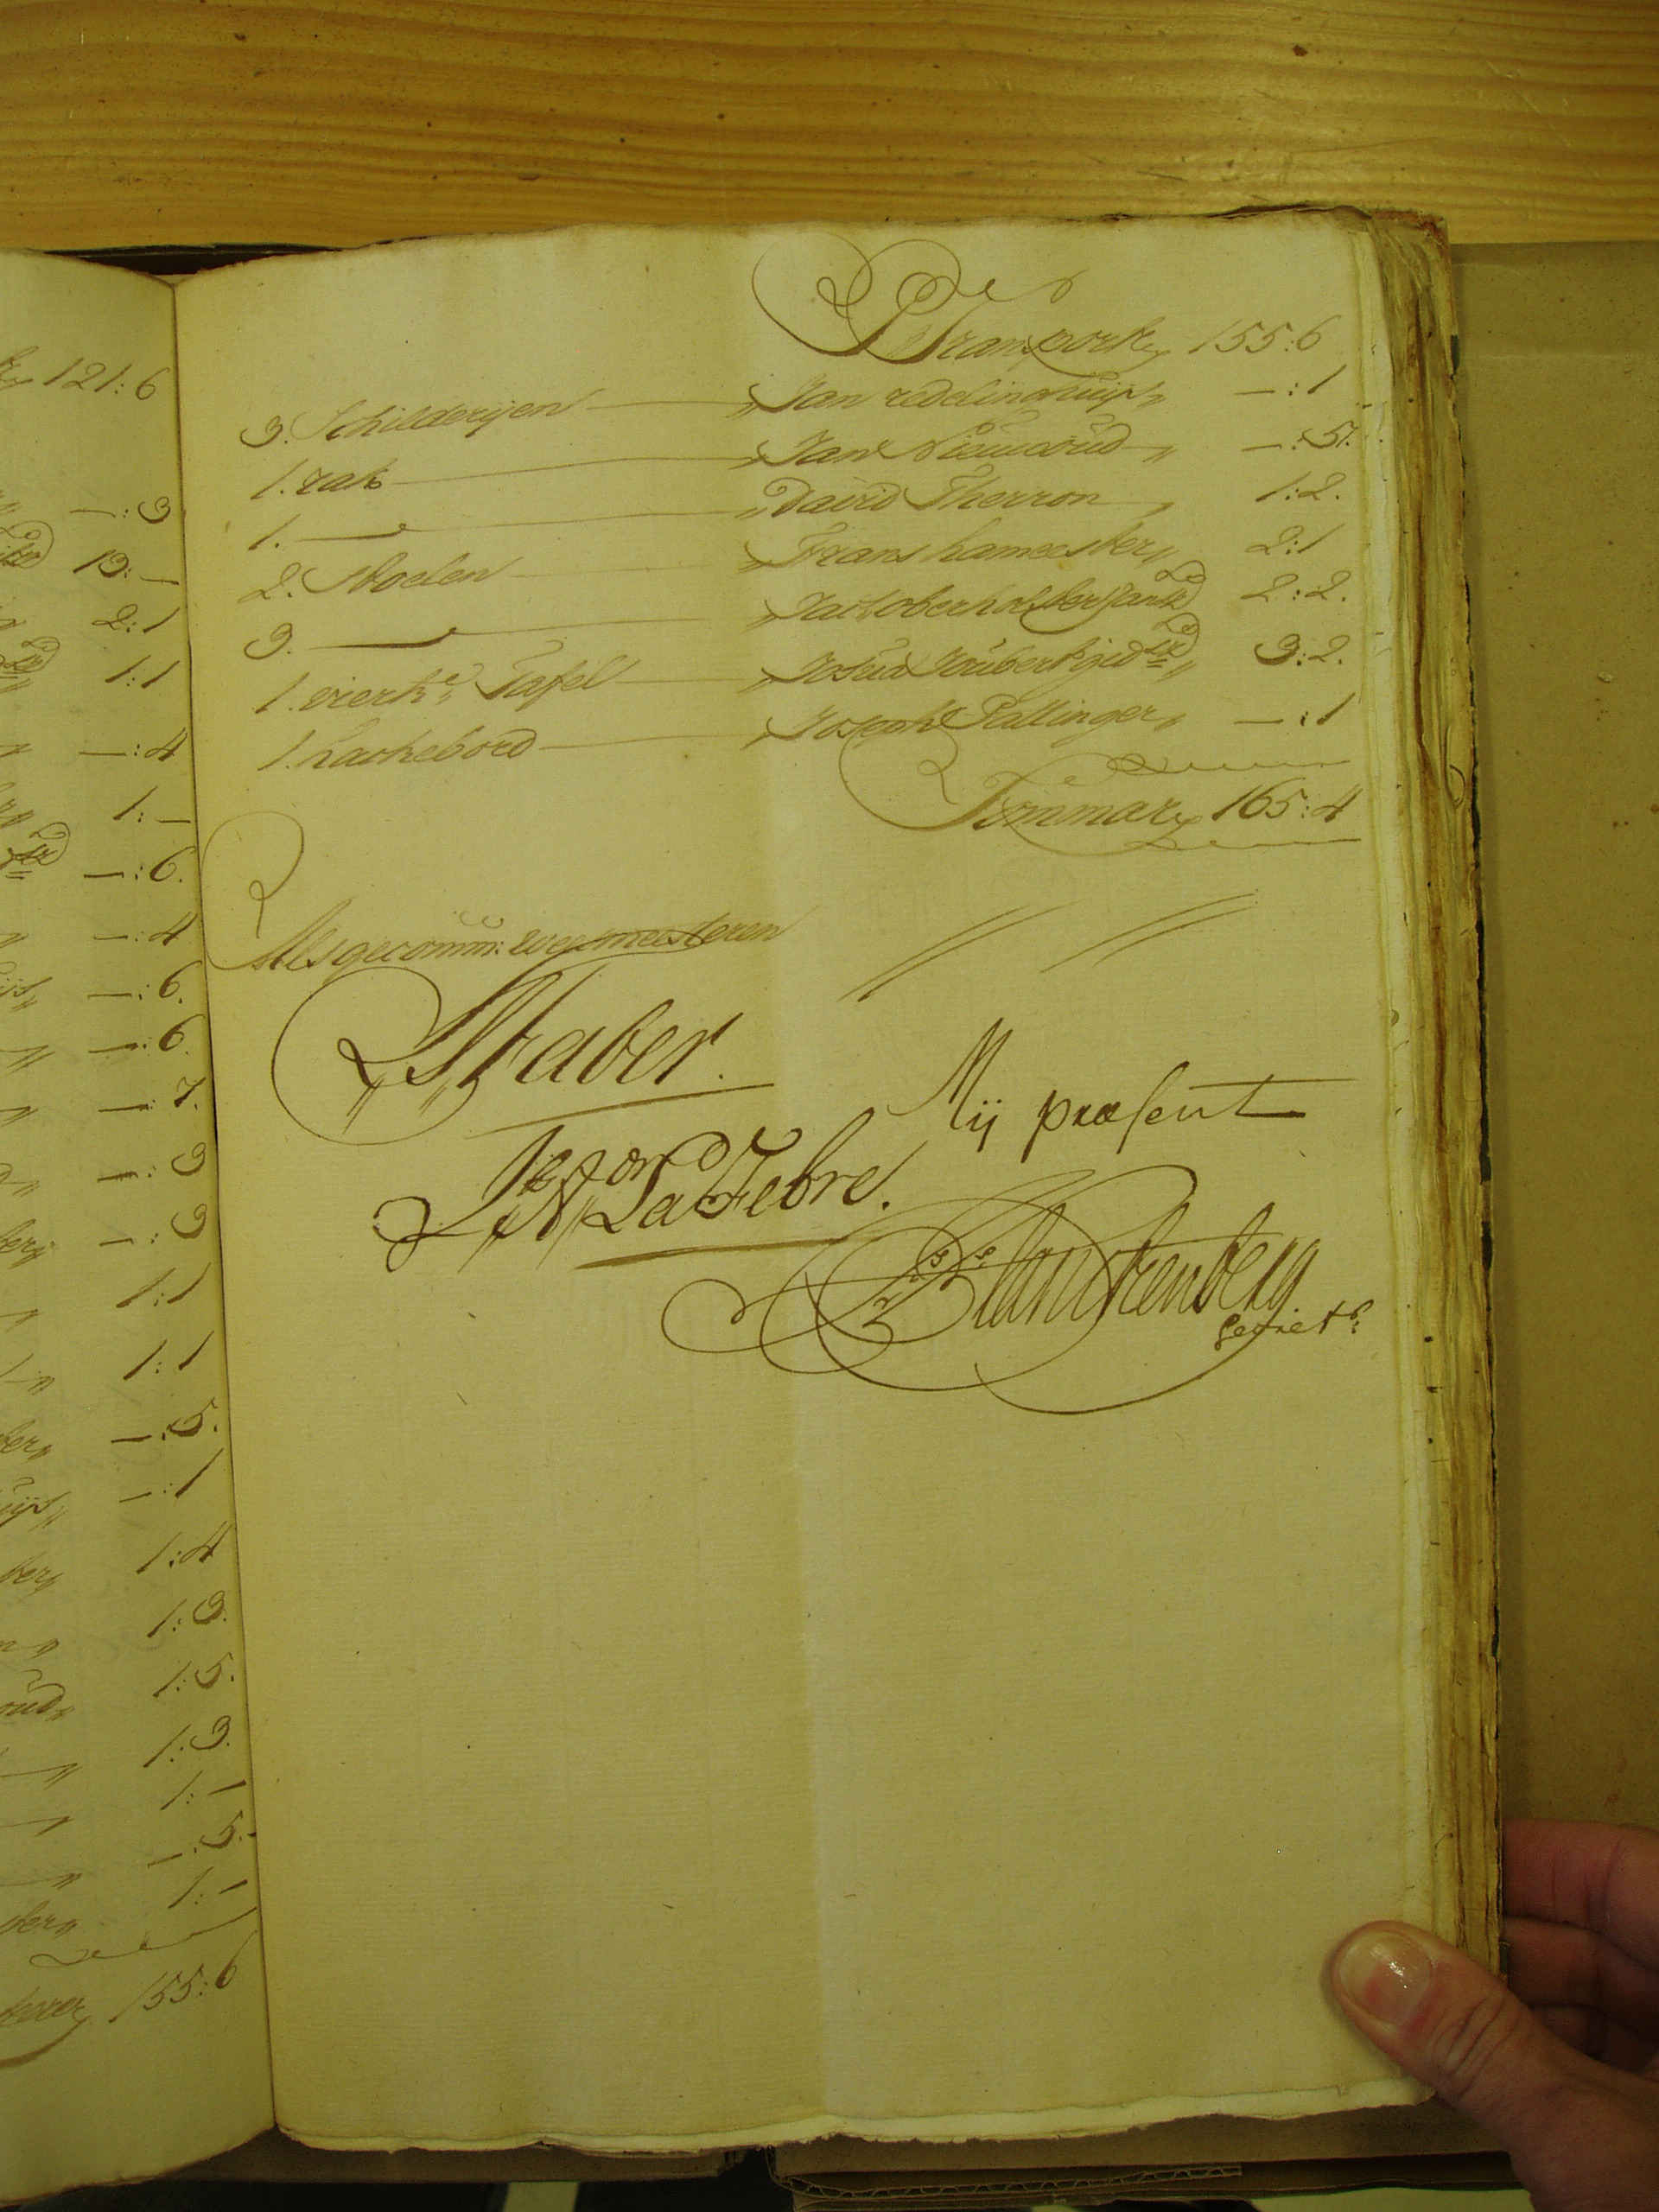 121:6
—:3
13:—
2:1
1:1
—:4
1:—
—:6.
—:4
—:6.
—:6.
—:7.
—:3
—:3
1:1
1:1
—:5.
—:1
1:4
1:3.
1:5.
1:3.
1:—
—:5.
1:—
155:6
P Transport 155:6
3. Schilderijen — „ Jan redelinghuijs „ —:1
1. rak — „ Jan Nieuwoud „ —:5.
1. — „ David Therron „ 1:2.
2. Stoelen — „ Frans hameester „ 2:1
3. — „ oberholster 2:2.
1. vierk:e Tafel — „ Josua Joubert gid 3:2.
1. hackebord — „ Joseph Pallinger „ —:1
Somma 165:4
Als gecomm: weesmeesteren
Faber.
La Febre.
Mij præsent
Secret:s